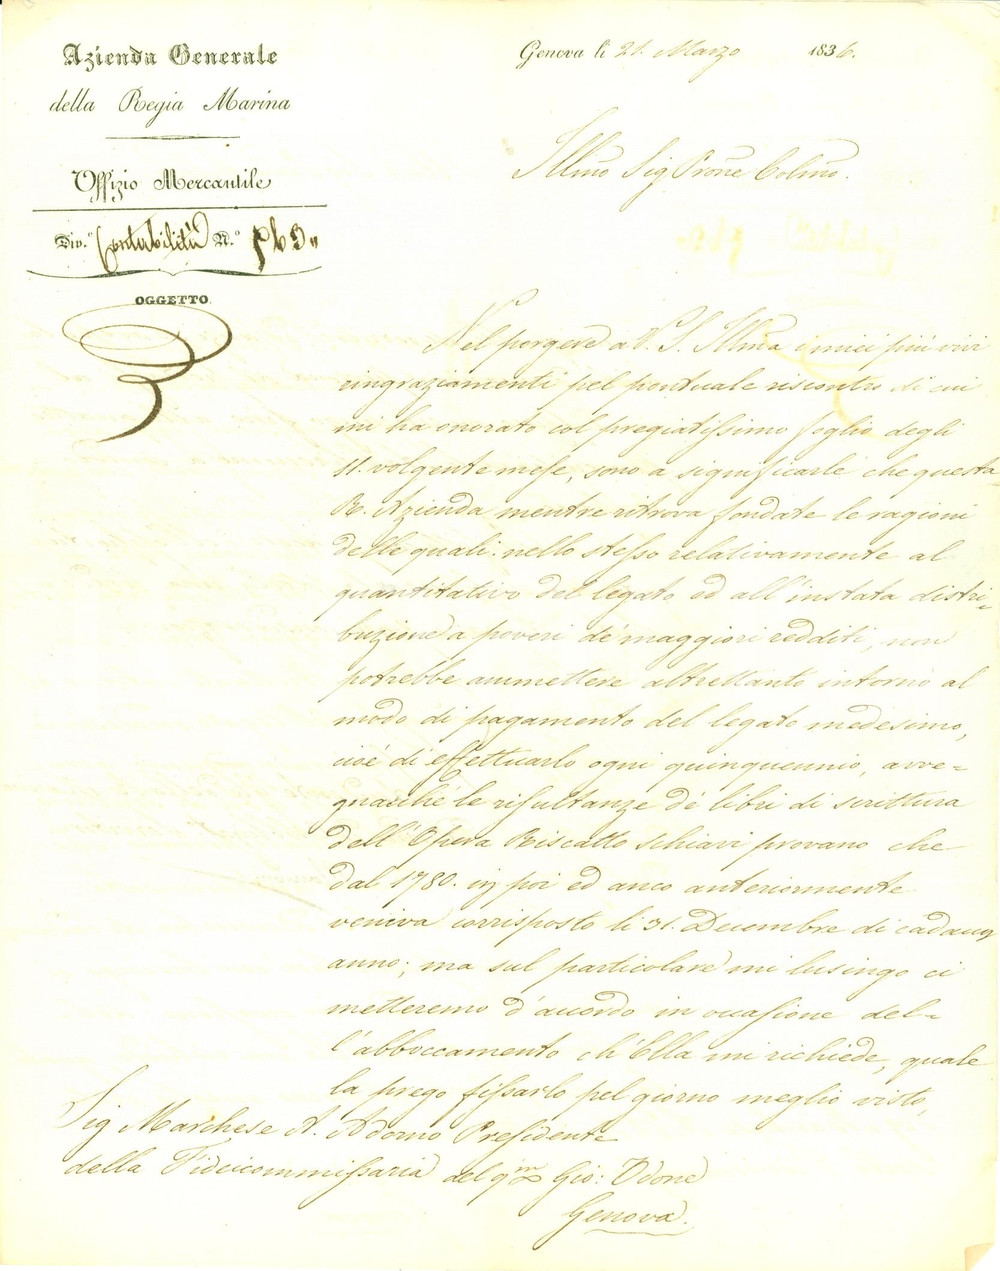 Azienda Generale
della Regia Marina
Uffizio Mercantile
Div.e Contabilità N.o
OGGETTO
Genova li 21. Marzo 1836.
Illmo Sig Prone Colmo.
Nel porgere a V. S. Illma i miei più vivi
ringraziamenti pel pontuale riscontro di cui
mi ha onorato col pregiatissimo foglio degli
11. volgente mese, sono a significarle che questa
R. Azienda mentre ritrova fondate le ragioni
delle quali nello stesso relativamente al
quantitativo del legato ed all'instata distri=
buzione a poveri de' maggiori redditi, non
potrebbe ammettere altrettanto intorno al
modo di pagamento del legato medesimo,
cioè di effettuarlo ogni quinquennio, avve=
gnacché le risultanze de' libri di scrittura
dell'Opera Riscatto Schiavi provano che
dal 1780. in poi ed anco anteriormente
veniva corrisposto li 31. Decembre di cadaun
anno; ma sul particolare mi lusingo ci
metteremo d'accordo in occasione del=
l'abboccamento ch'Ella mi richiede, quale
la prego fissarlo pel giorno meglio visto,
Sig Marchese A. Adorno Presidente
della Fideicommissaria del qm Gio: Odone
Genova.